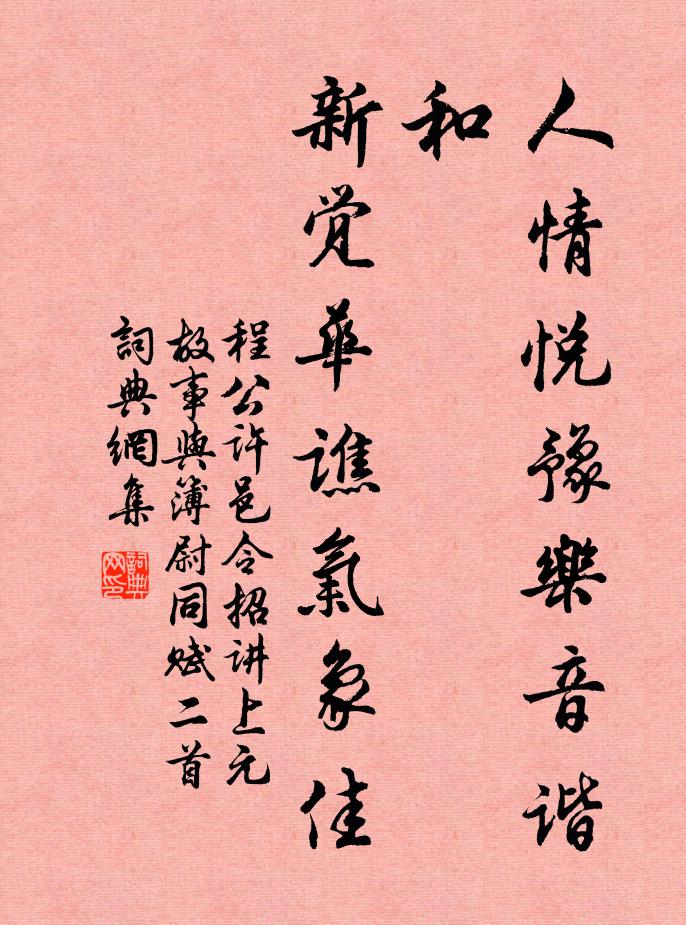 人情悦豫樂音谐
和
新觉華谯氣象佳
程公许邑令招讲上元
故事與簿尉同赋二首
詞典網集
詞典网印